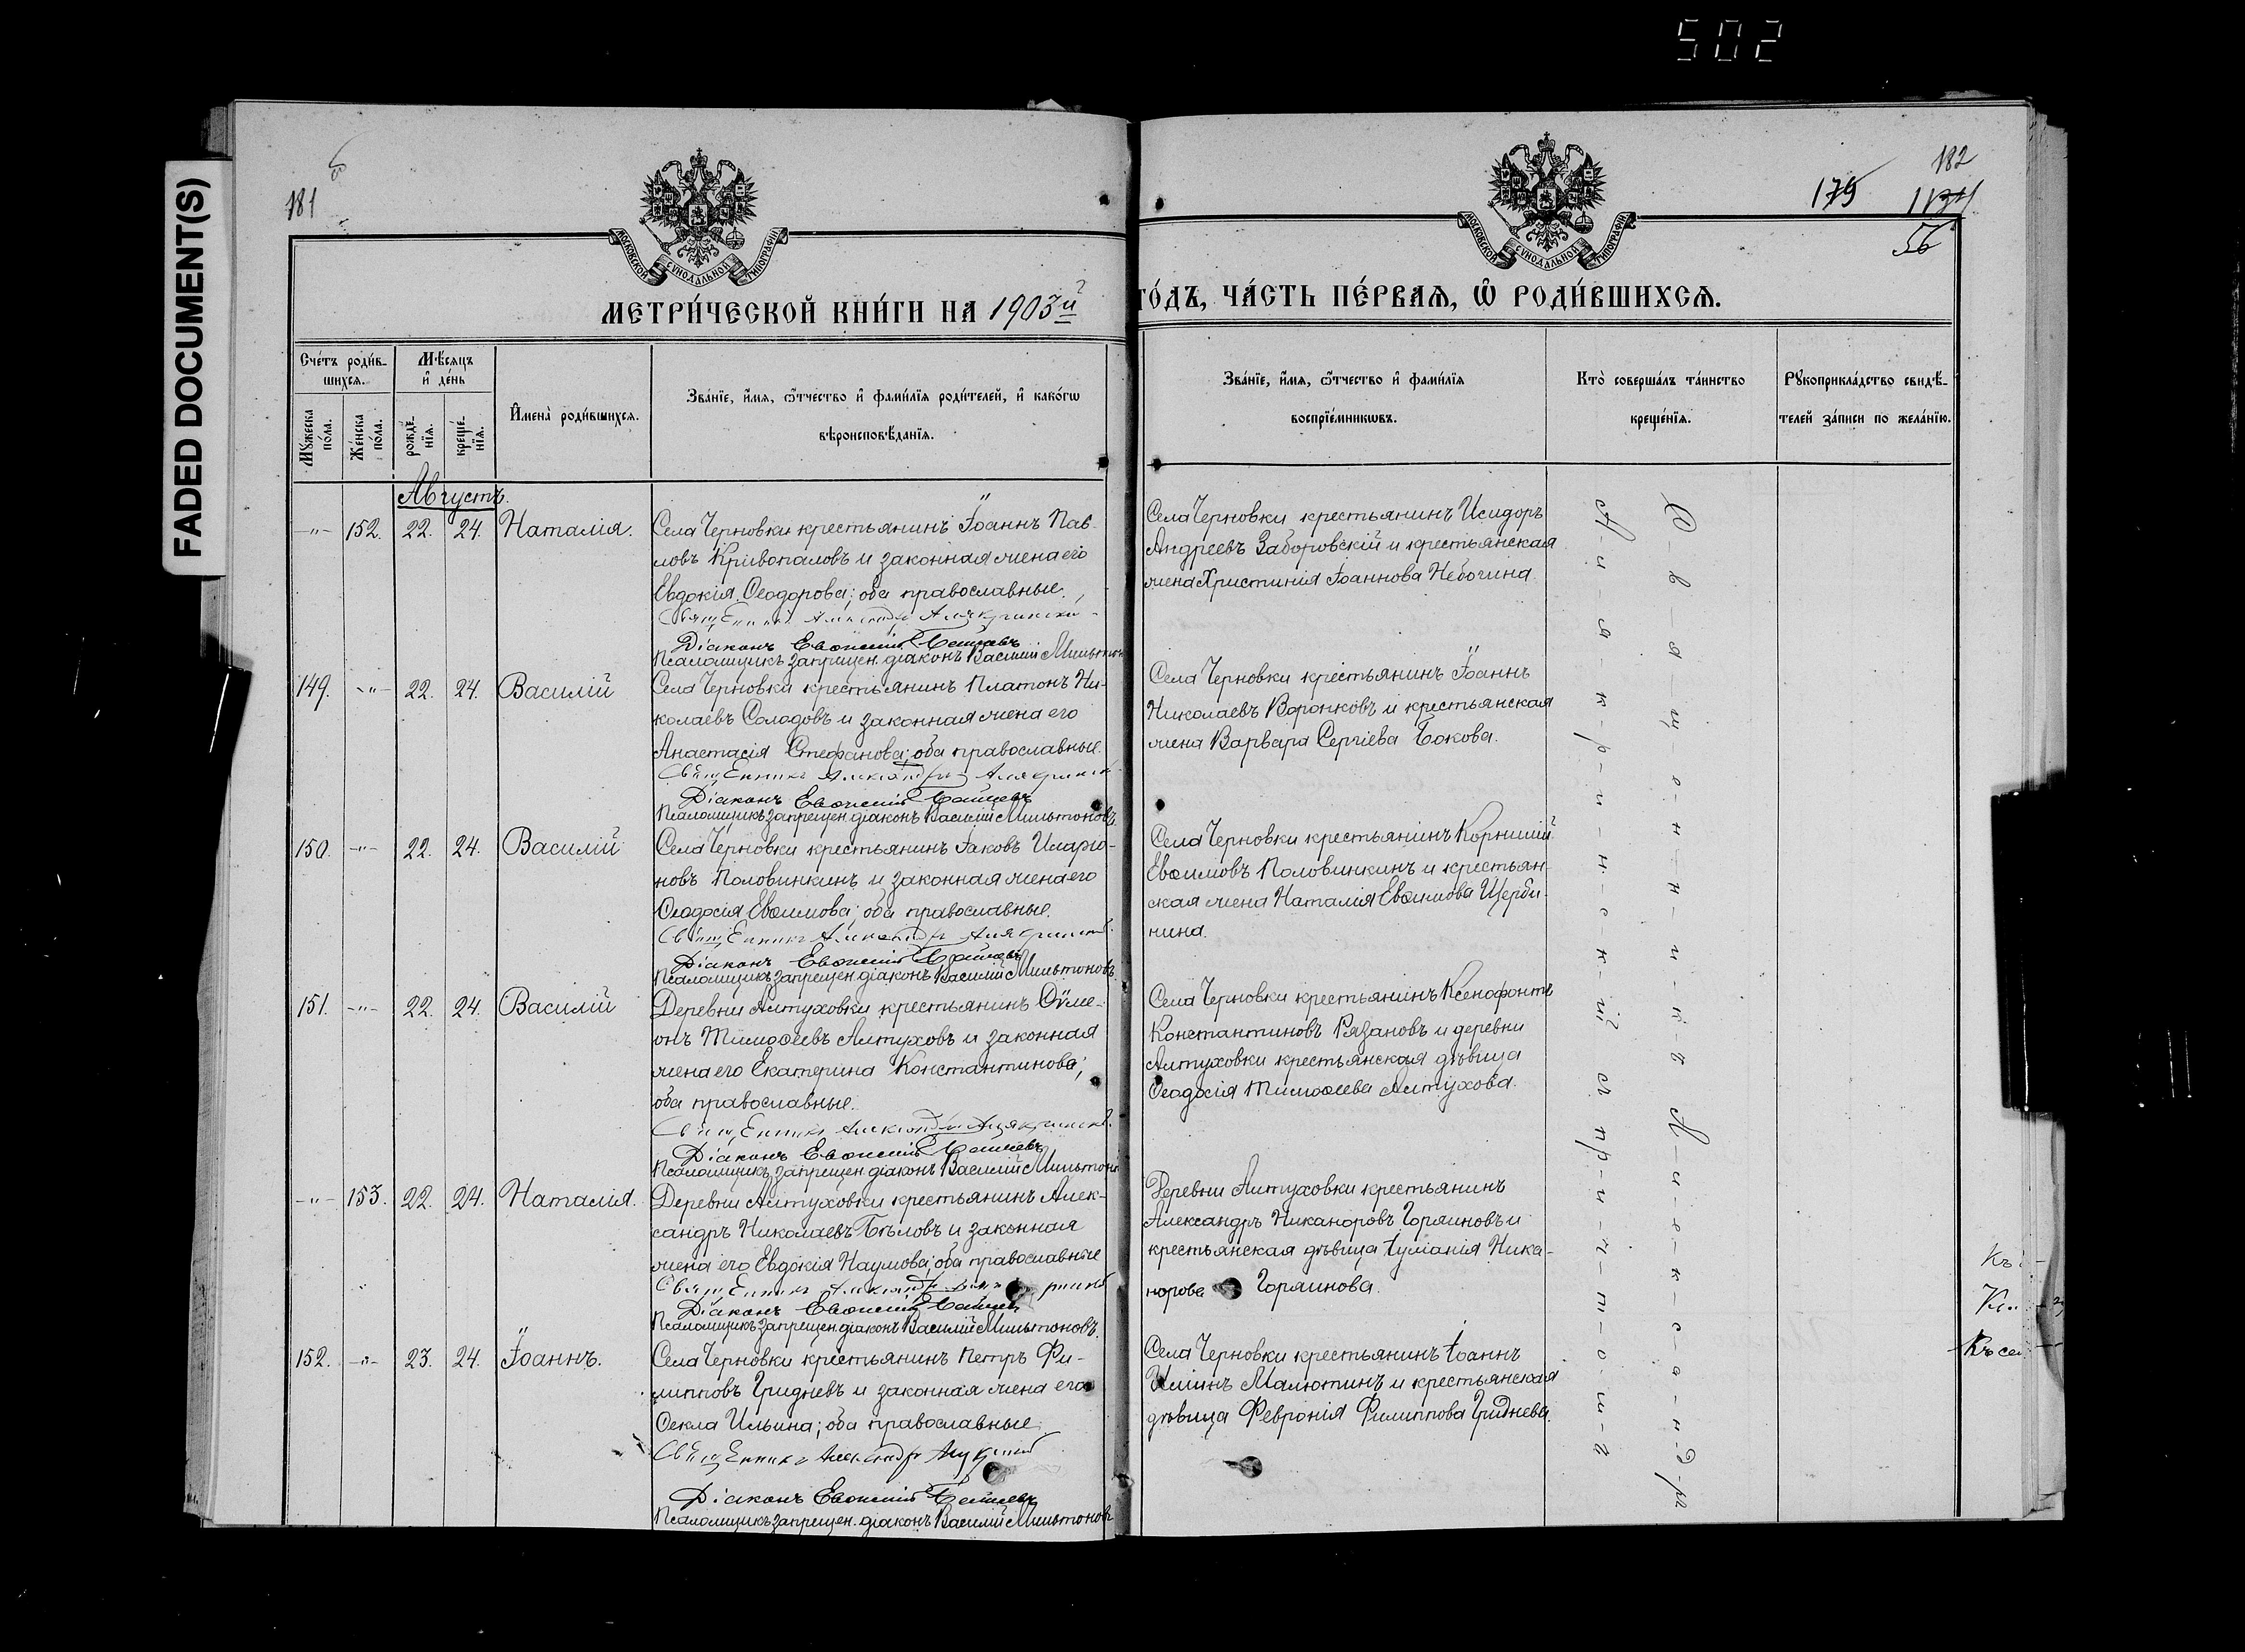 502
FADED DOCUMENT(S)
181
182
175
56
МОСКОВСКОЙ СѴНОДАЛЬНОЙ ТИПОГРАФІИ
МОСКОВСКОЙ СѴНОДАЛЬНОЙ ТИПОГРАФІИ
МЕТРИ́ЧЕСКОЙ КНИ́ГИ НА 1903й
ГО́ДЪ, ЧА́СТЬ ПЕ́РВАѦ, Ѡ҆ РОДИ́ВШИХСѦ.
Сче́тъ роди́в-
шихсѧ.
Мѣ́сѧцъ
и҆ де́нь
Мꙋжеска по́ла.
Же́нска по́ла.
рожде́-
нїѧ.
креще́-
нїѧ.
И҆мена̀ роди́вшихсѧ.
Зва́нїе, и҆́мѧ, ѻ҆́тчество и҆ фами́лїѧ роди́телей, и҆ како́гѡ
вѣроисповѣ́данїѧ.
Зва́нїе, и҆́мѧ, ѻ҆́тчество и҆ фами́лїѧ
воспрїе́мникѡвъ.
Кто̀ соверша́лъ та́инство
креще́нїѧ.
Рꙋкоприкла́дство свидѣ́-
телей за́писи по жела́нїю.
Августъ.
-"- 152. 22. 24. Наталія.
Села Черновки крестьянинъ Іоаннъ Пав-
ловъ Кривопаловъ и законная жена его
Евдокія Ѳеодорова; оба православные.
Священникъ Александръ Алякринскій
Діаконъ Евѳимій
Псаломщикъ запрещен. діаконъ Василій Мильтонов
Села Черновки крестьянинъ Исидоръ
Андреевъ Заборовскій и крестьянская
жена Христинія Іоаннова Небогина
149. -"- 22. 24. Василій
Села Черновки крестьянинъ Платонъ Ни-
колаевъ Солодовъ и законная жена его
Анастасія Стефанова; оба православные.
Священникъ Александръ Алякринскій
Діаконъ Евѳимій
Псаломщикъ запрещен. діаконъ Василій Мильтоновъ
Села Черновки крестьянинъ Іоаннъ
Николаевъ Воронковъ и крестьянская
жена Варвара Сергіева Бокова.
150. -"- 22. 24. Василій
Села Черновки крестьянинъ Іаковъ Иларіо-
новъ Половинкинъ и законная жена его
Ѳеодосія Евѳимова; оба православные.
Священникъ Александръ Алякринскій
Діаконъ Евѳимій
Псаломщикъ запрещен. діаконъ Василій Мильтоновъ
Села Черновки крестьянинъ Корнилій
Евѳимовъ Половинкинъ и крестьян-
ская жена Наталія Евѳимова Щерби-
нина.
151. -"- 22. 24. Василій
Деревни Алтуховки крестьянинъ Сѵме-
онъ Тимоѳеевъ Алтуховъ и законная
жена его Екатерина Константинова;
оба православные.
Священникъ Александръ Алякринскій
Діаконъ Евѳимій
Псаломщикъ запрещен. діаконъ Василій Мильтонов
Села Черновки крестьянинъ Ксенофонтъ
Константиновъ Рязановъ и деревни
Алтуховки крестьянская дѣвица
Ѳеодосія Тимоѳеева Алтухова.
-"- 153. 22. 24. Наталія.
Деревни Алтуховки крестьянинъ Алек-
сандръ Николаевъ Бѣловъ и законная
жена его Евдокія Наумова; оба православные
Священникъ Александръ
Діаконъ Евѳимій
Псаломщикъ запрещен. діаконъ Василій Мильтоновъ.
Деревни Алтуховки крестьянинъ
Александръ Никаноровъ Горяиновъ и
крестьянская дѣвица Іуліанія Ника-
норова Горяинова.
152. -"- 23. 24. Іоаннъ.
Села Черновки крестьянинъ Петръ Фи-
липповъ Гридневъ и законная жена его
Ѳекла Ильина; оба православные.
Священникъ Александръ
Діаконъ Евѳимій
Псаломщикъ запрещен. діаконъ Василій Мильтоновъ
Села Черновки крестьянинъ Іоаннъ
Ильинъ Малютинъ и крестьянская
дѣвица Февронія Филиппова Гриднева.
С-в-я-щ-е-н-н-и-к-ъ А-л-е-к-с-а-н-д-ръ
А-л-я-к-р-и-н-с-к-ій съ пр-и-ч-т-о-м-ъ